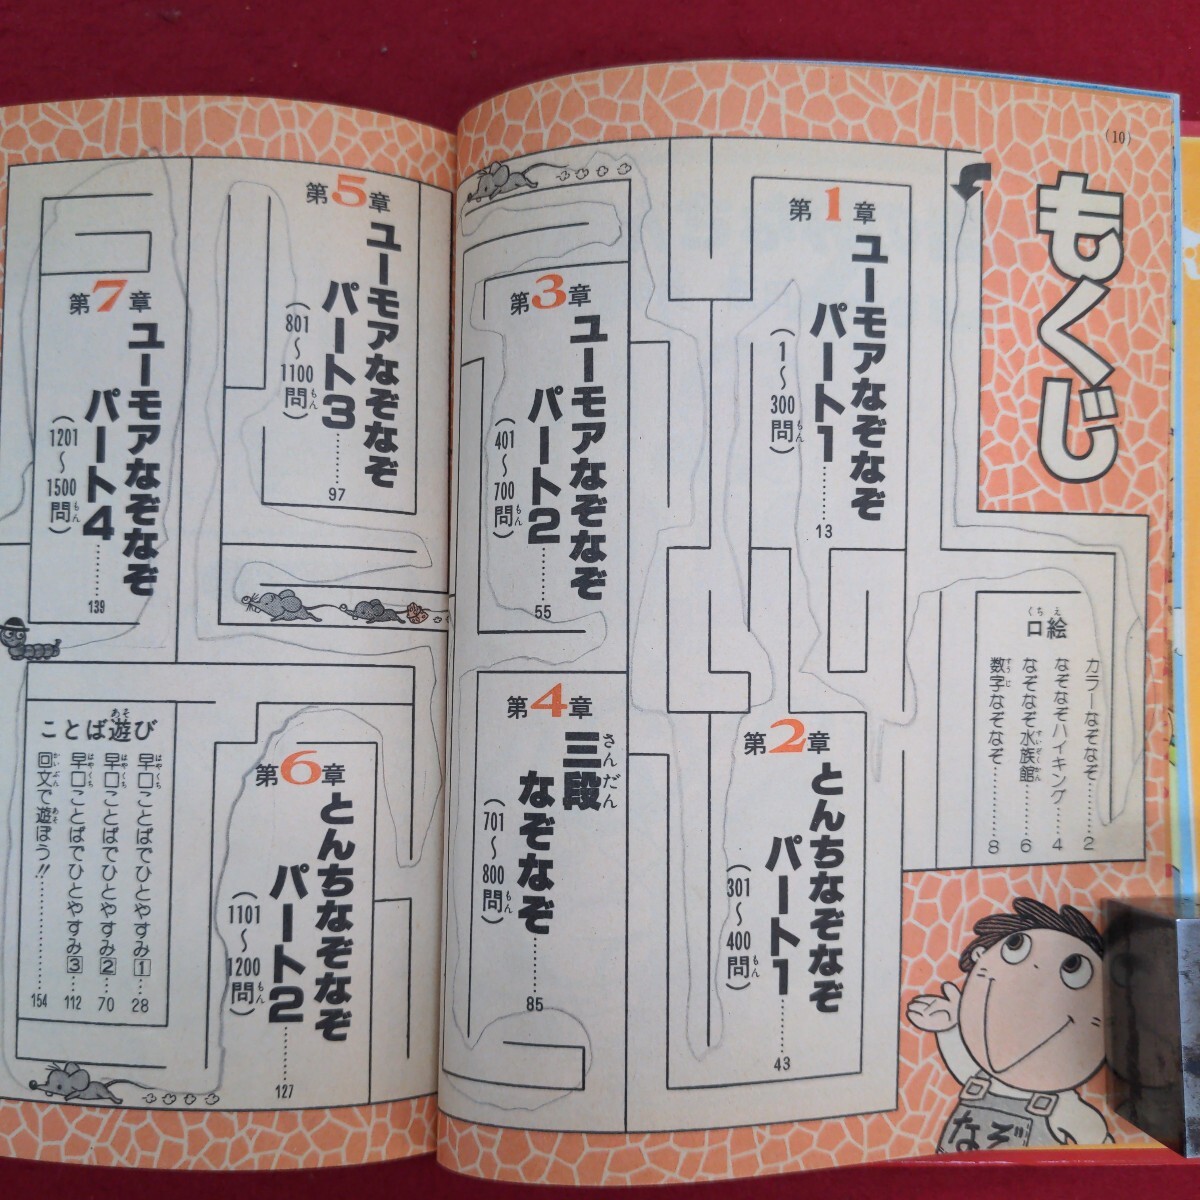 (10)
もくじ
口絵
くちえ
カラーなぞなぞ………2
なぞなぞハイキング……4
なぞなぞ水族館…………6
すいぞくかん
数字なぞなぞ……………8
すうじ
第1章
ユーモアなぞなぞ
パート1……13
(1〜300問)
もん
第2章
とんちなぞなぞ
パート1……43
(301〜400問)
もん
第3章
ユーモアなぞなぞ
パート2……55
(401〜700問)
もん
第4章
三段
さんだん
なぞなぞ……85
(701〜800問)
もん
第5章
ユーモアなぞなぞ
パート3……97
(801〜1100問)
もん
第6章
とんちなぞなぞ
パート2……127
(1101〜1200問)
もん
第7章
ユーモアなぞなぞ
パート4……139
(1201〜1500問)
もん
ことば遊び
あそ
早口ことばでひとやすみ1…28
はやくち
早口ことばでひとやすみ2…70
はやくち
早口ことばでひとやすみ3…112
はやくち
回文で遊ぼう!!………154
かいぶん
あそ
なぞ